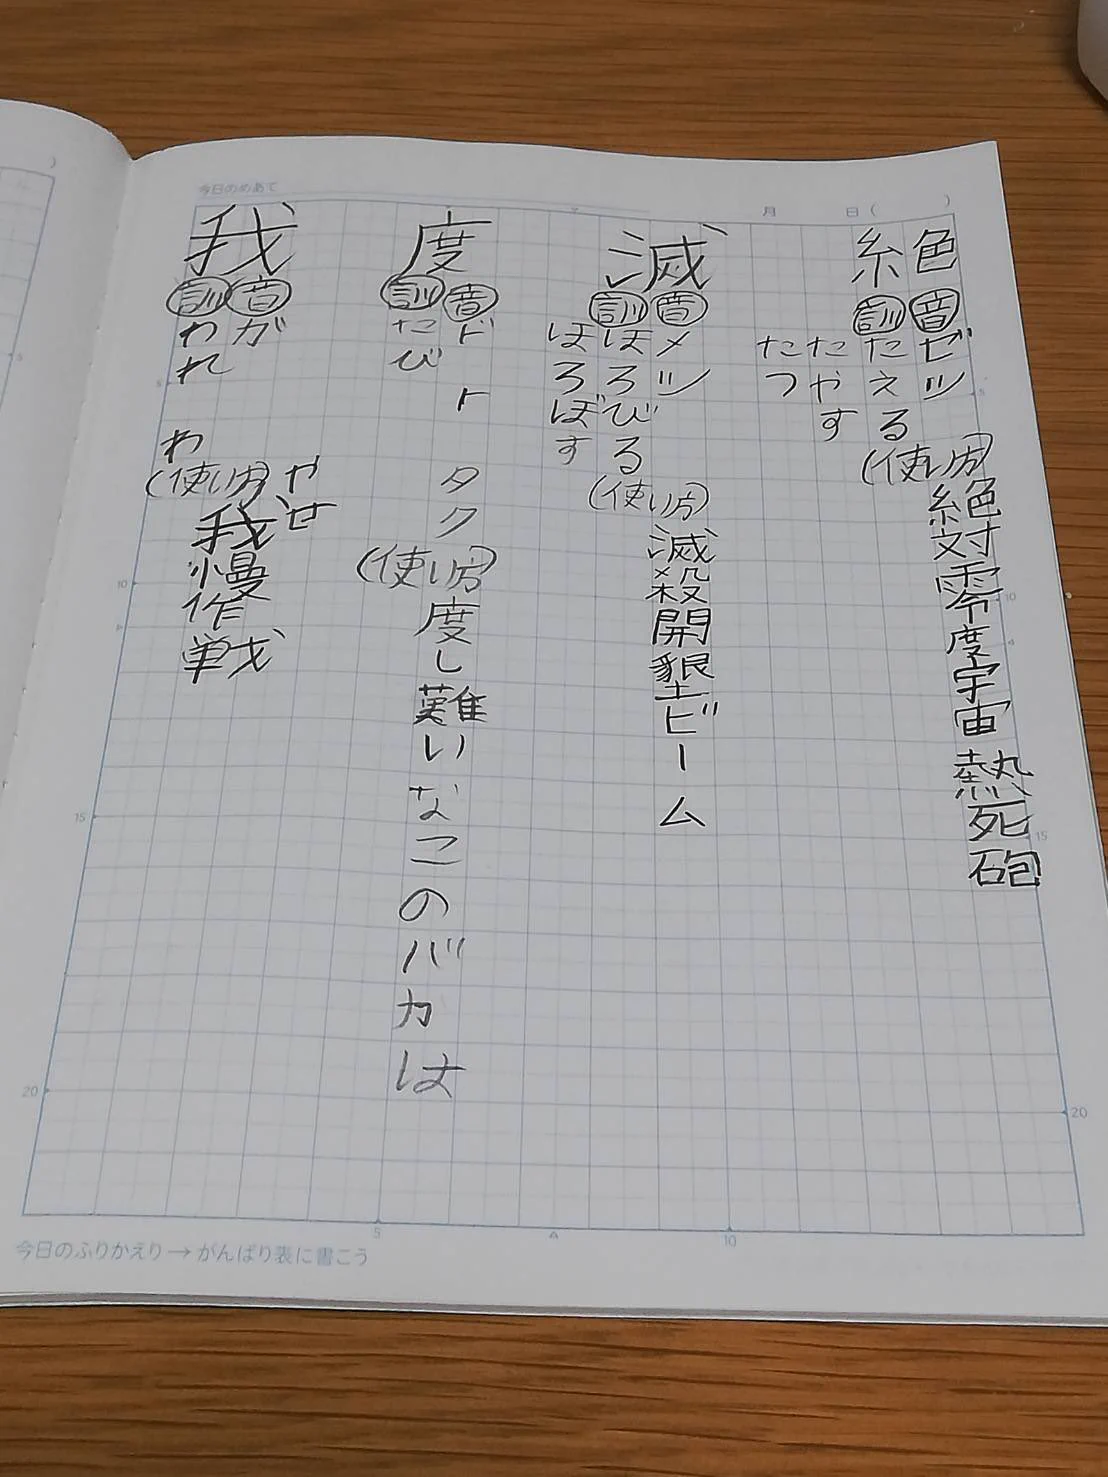 今日のめあて
月 日( )
絶
音 ゼツ
訓 たえる
たやす
たつ
(使い方)
絶対零度宇宙熱死砲
滅
音 メツ
訓 ほろびる
ほろぼす
(使い方)
滅殺開墾ビーム
度
音 ド ト タク
訓 たび
(使い方)
度し難いなこのバカは
我
音 ガ
訓 われ わ
やせ
(使い方)
我慢作戦
5
10
15
20
5
10
15
20
5
10
今日のふりかえり→がんばり表に書こう